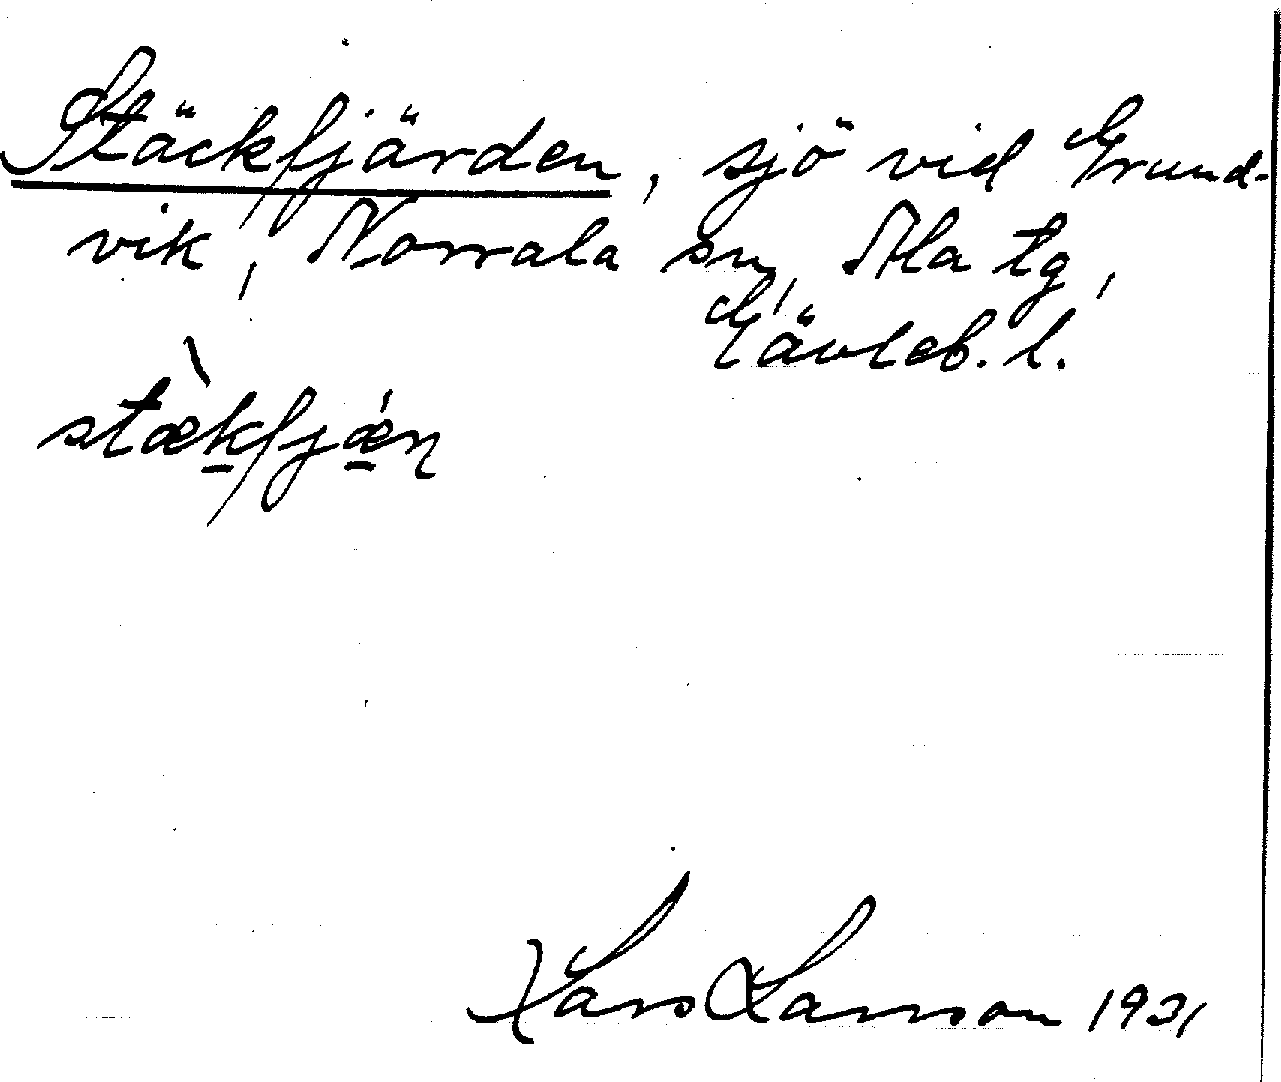 Stäckfjärden, sjö vid Grund-
vik, Norrala sn, Ala tg,
Gävleb. l.
stæ̀kfjǽɳ
Lars Larsson 1931